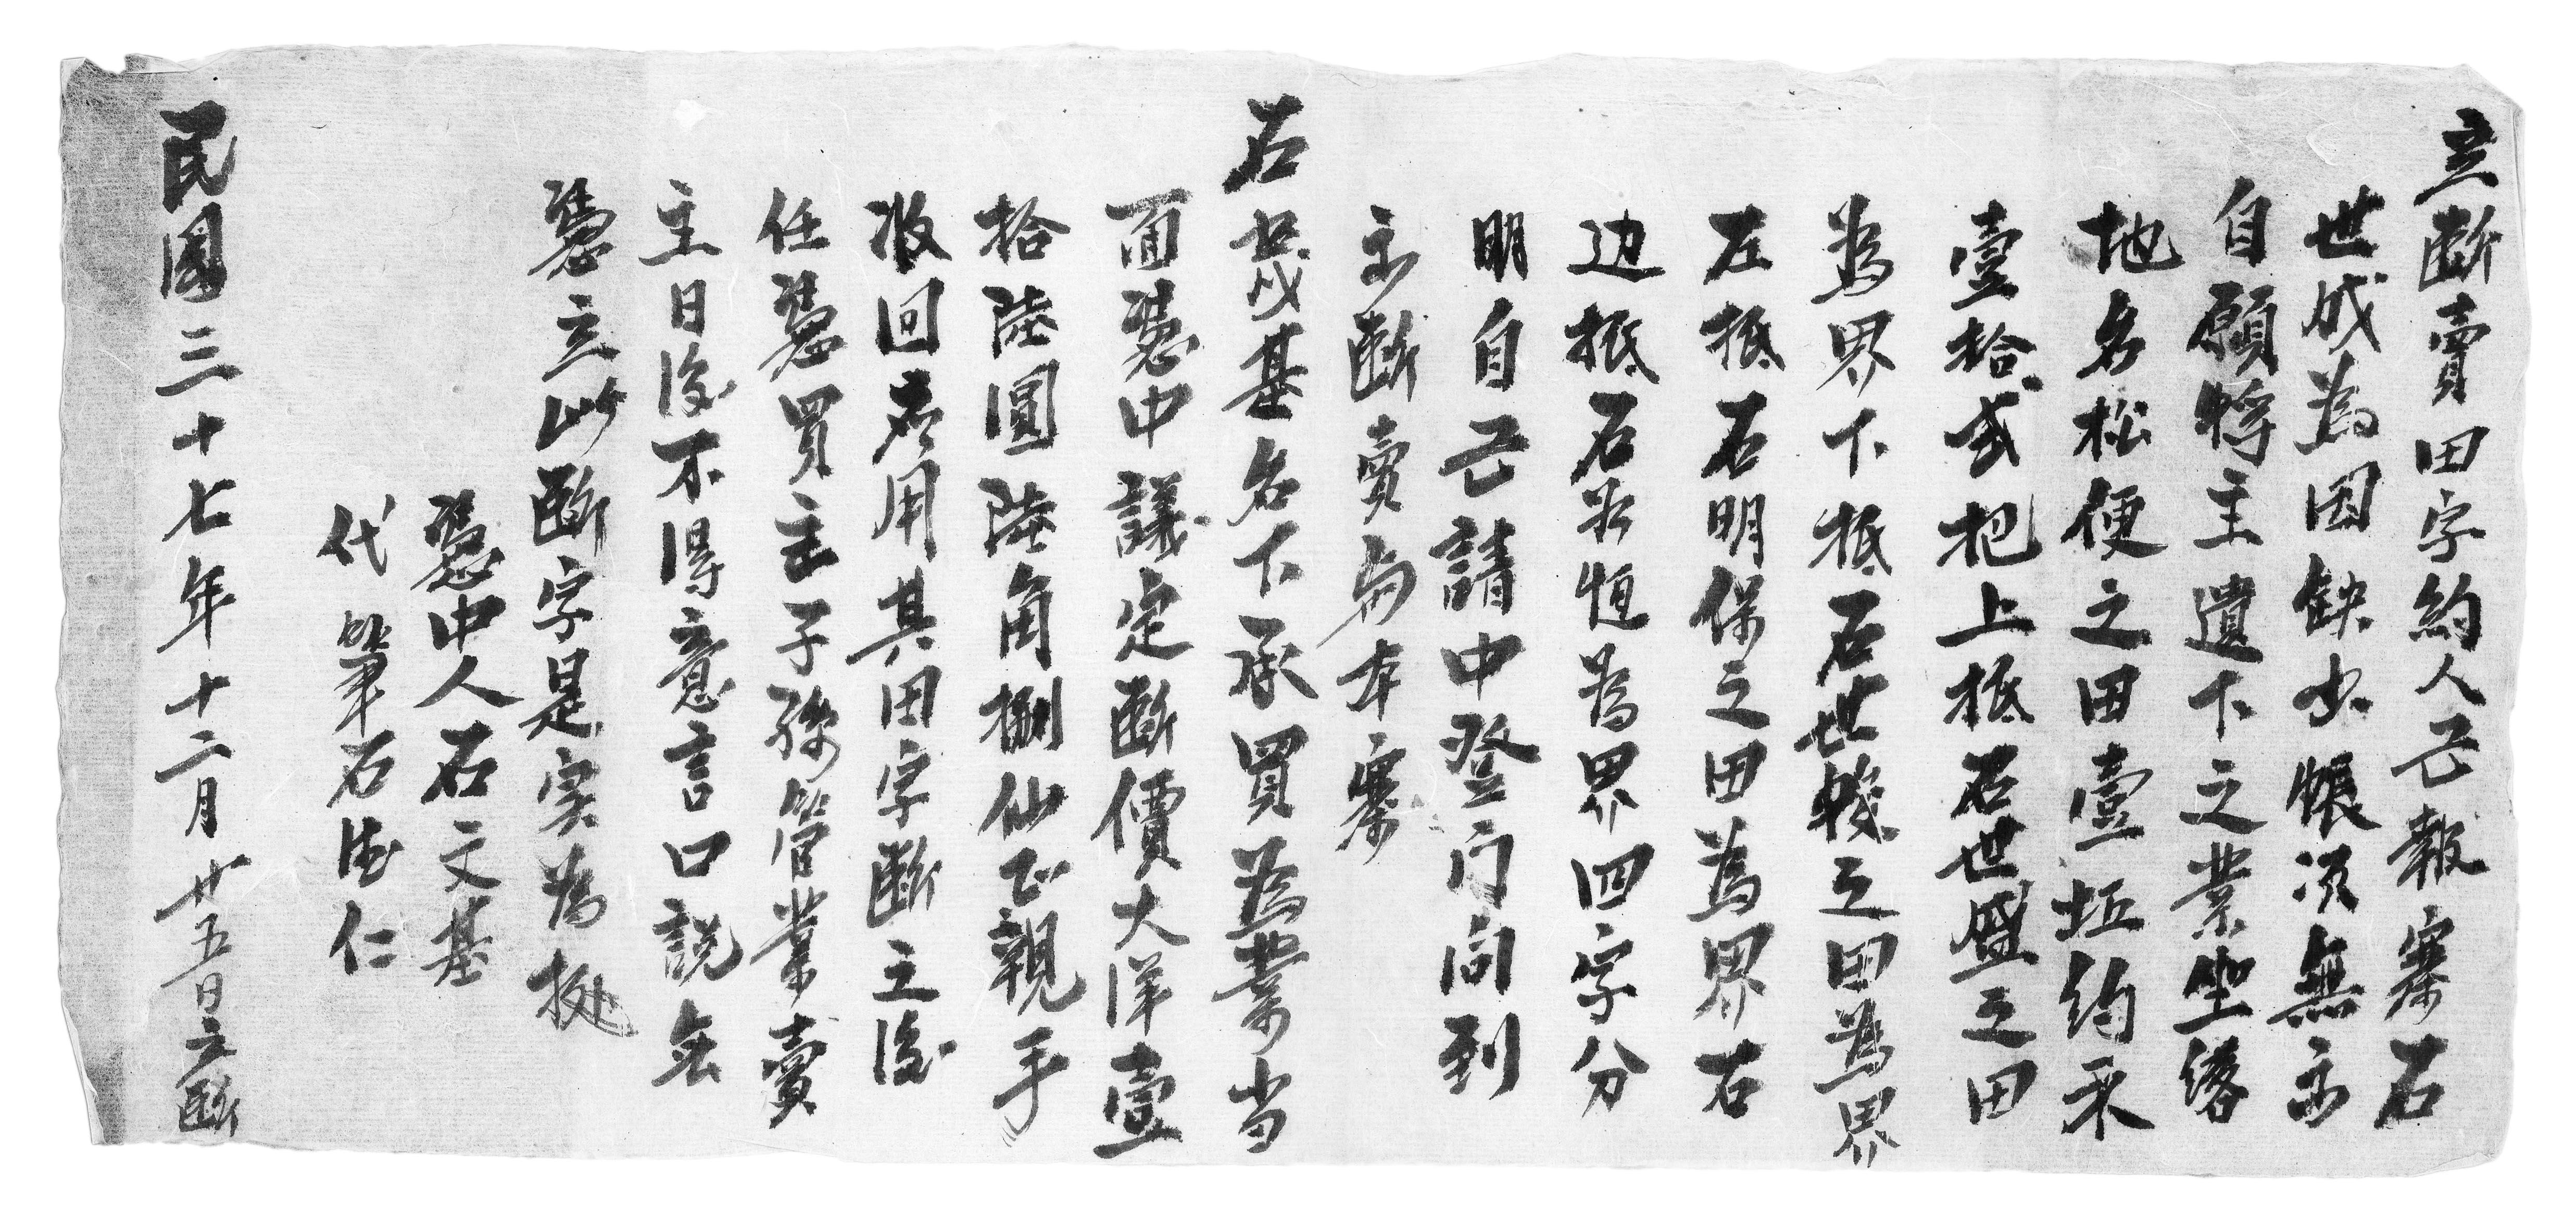 立斷賣田字約人己報寨石
世成為因缺少賬項無
自願將主遺下之業坐落
地名松便之田壹坵約禾
壹拾貳把上抵石世盛之田
為界下抵石世錢之田為界
左抵石明保之田為界右
边抵石茲恒為界四字分
明自己請中登门问到
斷賣與本寨
石茂基名下承買為業当
面憑中議定斷價大洋壹
拾陸圓陸角捌仙正親手
收回應用其田字斷之後
任憑買主子孫管業賣
主日後不得意言口説無
憑立此斷字是实為挺
憑中人石文基
代筆石德仁
民國三十七年十二月廿五日立斷